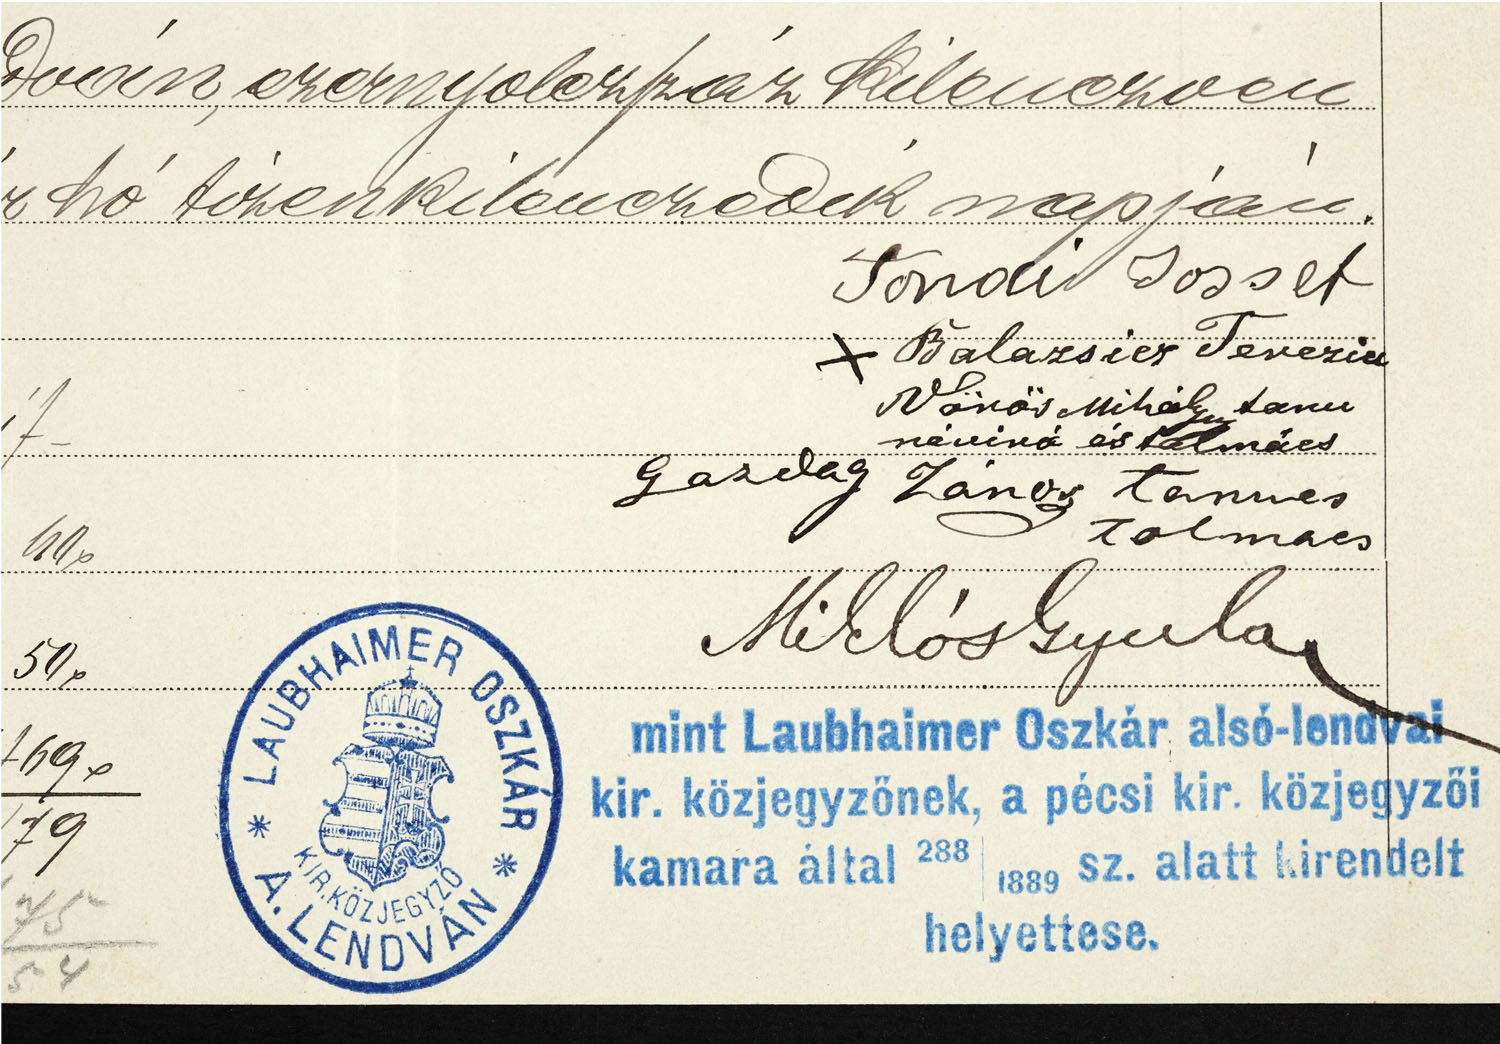 ezernyolczszáz kilenczven
hó tizenkilenczedik napján.
Tondi Josset
× Balazsicz Terezia
Vörös Mihály tanu
névíró és tolmács
Gazdag János tanu es
tolmacs
60
50
Miklós Gyula
169
179
75
54
LAUBHAIMER OSZKÁR
KIR. KÖZJEGYZŐ
* A. LENDVÁN *
mint Laubhaimer Oszkár alsó-lendvai
kir. közjegyzőnek, a pécsi kir. közjegyzői
kamara által 288 | 1889 sz. alatt kirendelt
helyettese.